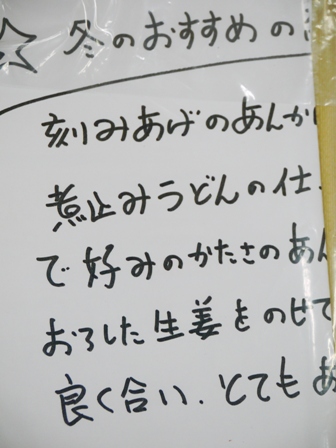 ☆ 冬のおすすめの
刻みあげのあんか
煮止みうどんの仕
で好みのかたさのあん
おろした生姜をのせて
良く合い、とてもお